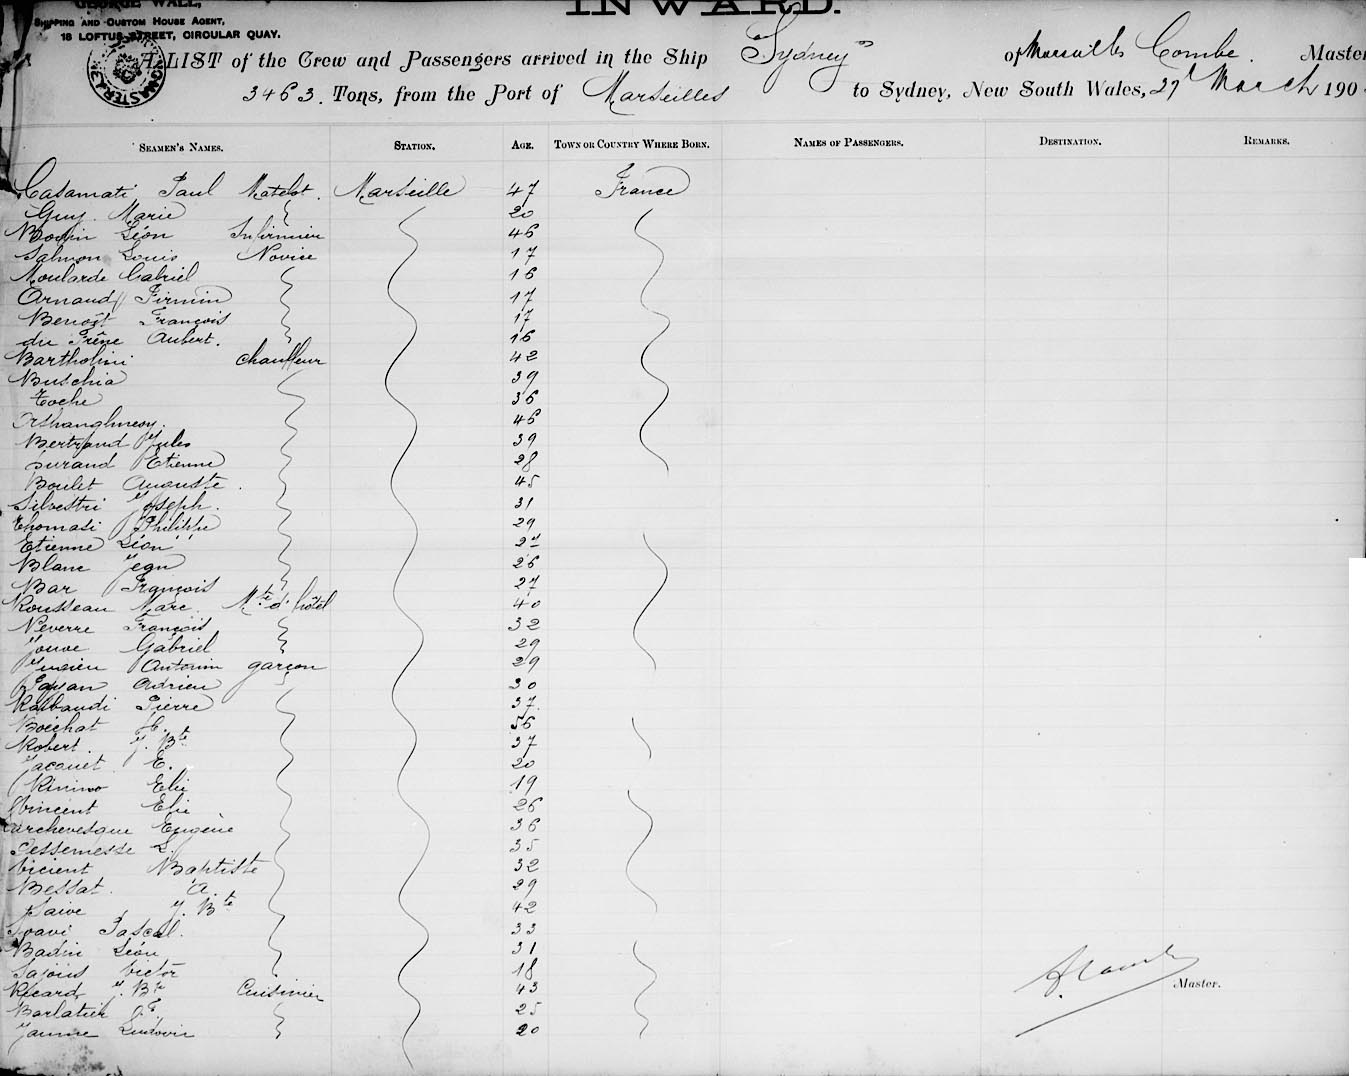 GEORGE WALL,
SHIPPING AND CUSTOM HOUSE AGENT,
18 LOFTUS STREET, CIRCULAR QUAY.
INWARD.
A LIST of the Crew and Passengers arrived in the Ship "Sydney" of Marseilles Combe. Master
3463. Tons, from the Port of Marseilles to Sydney, New South Wales, 27 March 190
SEAMEN'S NAMES. STATION. AGE. TOWN OR COUNTRY WHERE BORN. NAMES OF PASSENGERS. DESTINATION. REMARKS.
Casamati Paul Matelot. Marseille 47 France
Guy Marie 20
Léon Infirmier 46
Salmon Louis Novice 17
Moularde Gabriel 16
Arnaud Firmin 17
Benoît François 17
du Frêne Aubert. 16
Bartholini chauffeur 42
Buschia 39
Toche 36
46
Bertrand Jules 39
Durand Etienne 28
Boulet Auguste. 45
Silvestri Joseph. 31
Thomasi Philippe 29
Etienne Léon 27
Blanc Jean 26
Bar François 27
Rousseau Marc. Mtre d'hôtel 40
Peverre François 32
Jouve Gabriel 29
Antonin garçon 29
Adrien 30
Raibaudi Pierre 37.
Boichat 56
Robert. J. Bte 37
Jacquet E. 20
Elie 19
Vincent Elie 26
Larchevesque Eugène 36
Tessemesse L. 35
Vicient Baptiste 32
Bessat. A. 29
J. Bte 42
Soavi Pascal. 33
Badin Léon 31
Sajous Victor 18
Ricard J. Bte Cuisinier 43
Barlatier 25
Jaume Ludovic 20
Master.